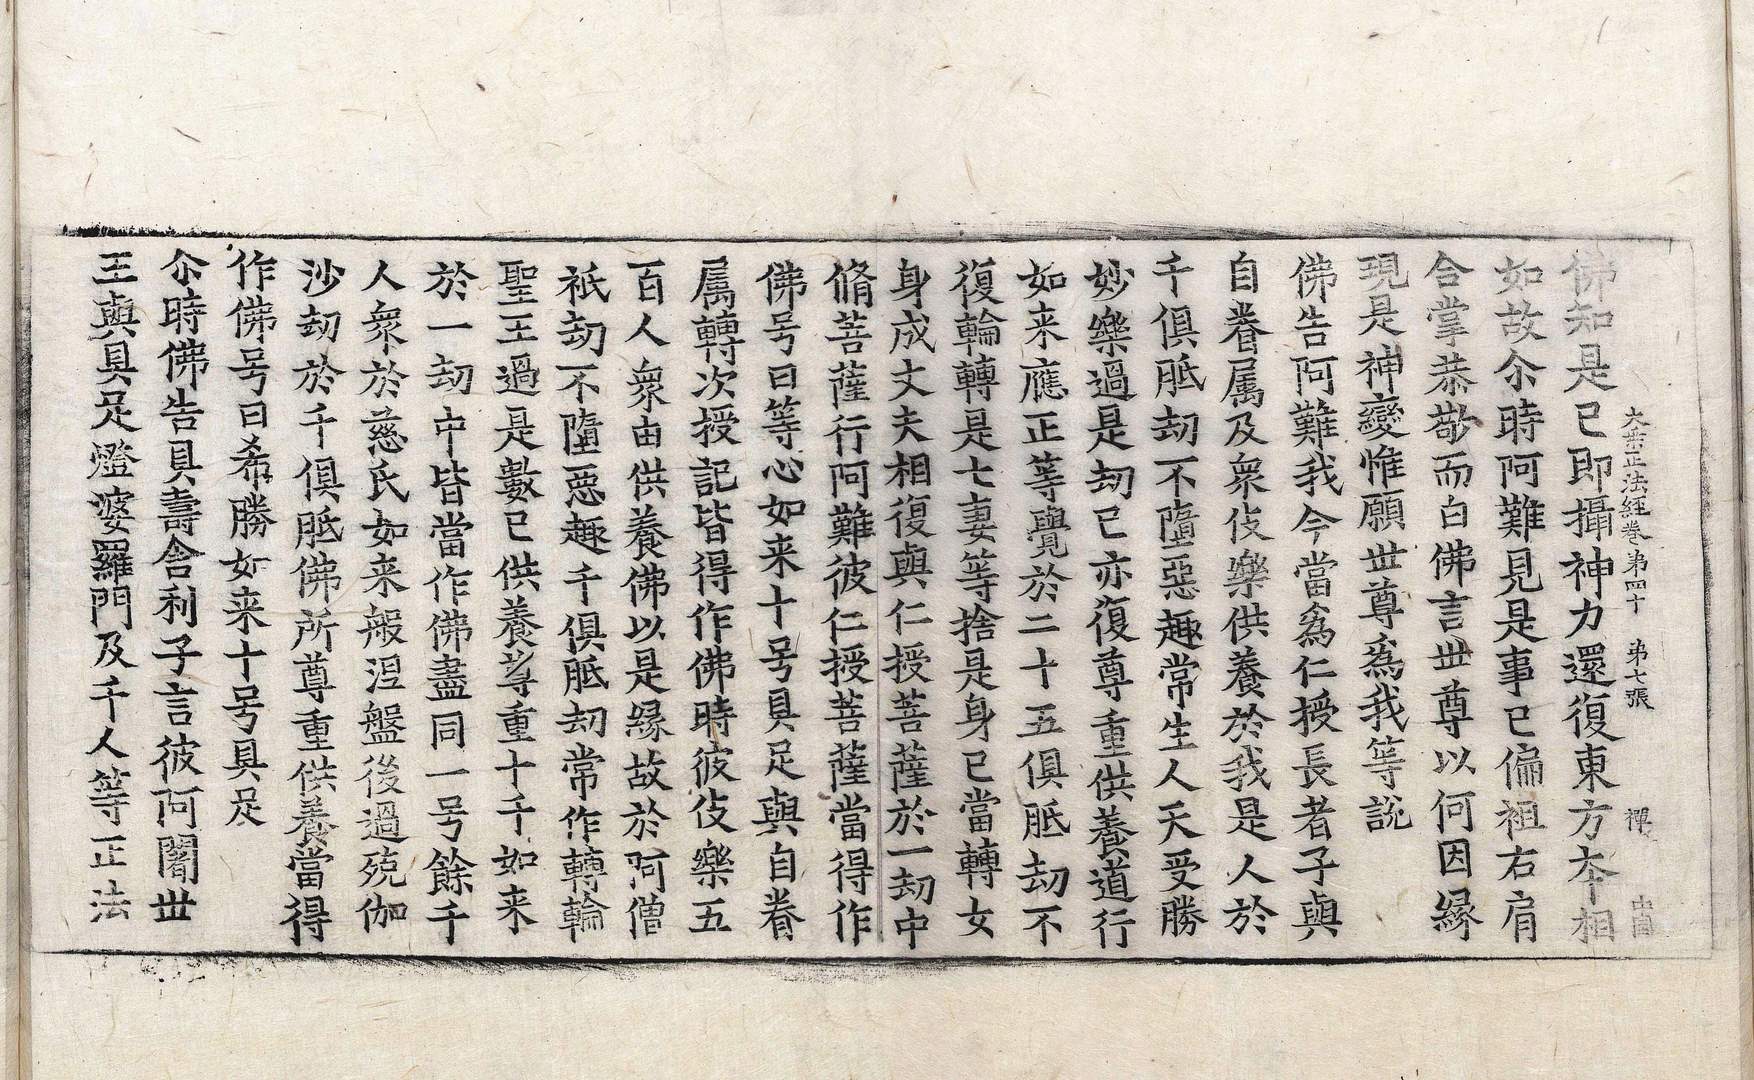 大乘正法經卷第四十 第七張 禪
佛知是已即攝神力還復東方夲相
如故尒時阿難見是事已偏袒右肩
合掌恭敬而白佛言丗尊以何因縁
現是神變惟願丗尊爲我等說
佛告阿難我今當爲仁授長者子與
自眷属及衆伎樂供養於我是人於
千俱胝劫不墮惡趣常生人天受勝
妙樂過是劫已亦復尊重供養道行
如来應正等覺於二十五俱胝劫不
復輪轉是七妻等捨是身已當轉女
身成丈夫相復與仁授菩薩於一劫中
脩菩薩行阿難彼仁授菩薩當得作
佛号曰等心如来十号具足與自眷
属轉次授記皆得作佛時彼伎樂五
百人衆由供養佛以是縁故於阿僧
祇劫不墮惡趣千俱胝劫常作轉輪
聖王過是數已供養尊重十千如来
於一劫中皆當作佛盡同一号餘千
人衆於慈氏如来般涅盤後過殑伽
沙劫於千俱胝佛所尊重供養當得
作佛号曰希勝如来十号具足
尒時佛告具壽舎利子言彼阿闍丗
王與具足燈婆羅門及千人等正法